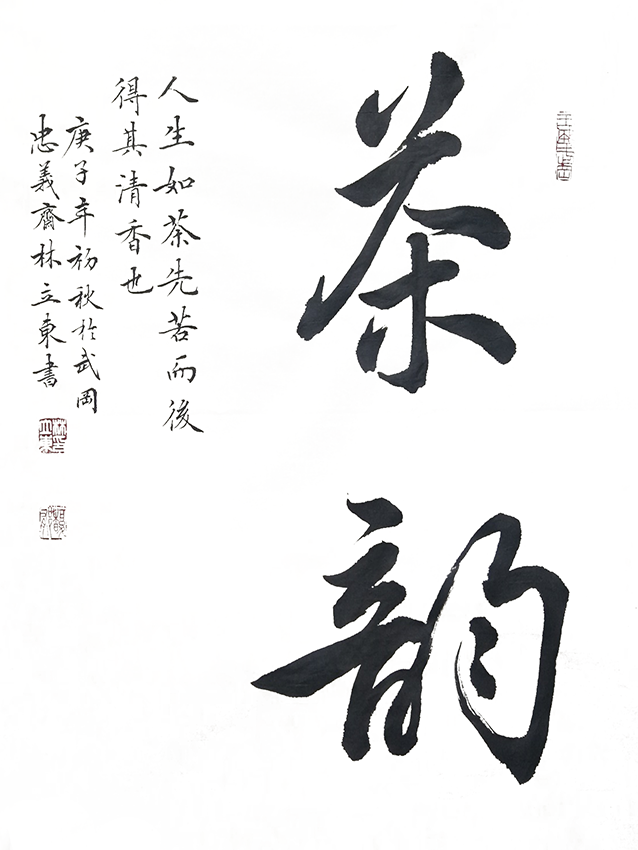 茶韵
人生如茶先苦而後
得其清香也
庚子年初秋於武岡
忠義齋林立東書